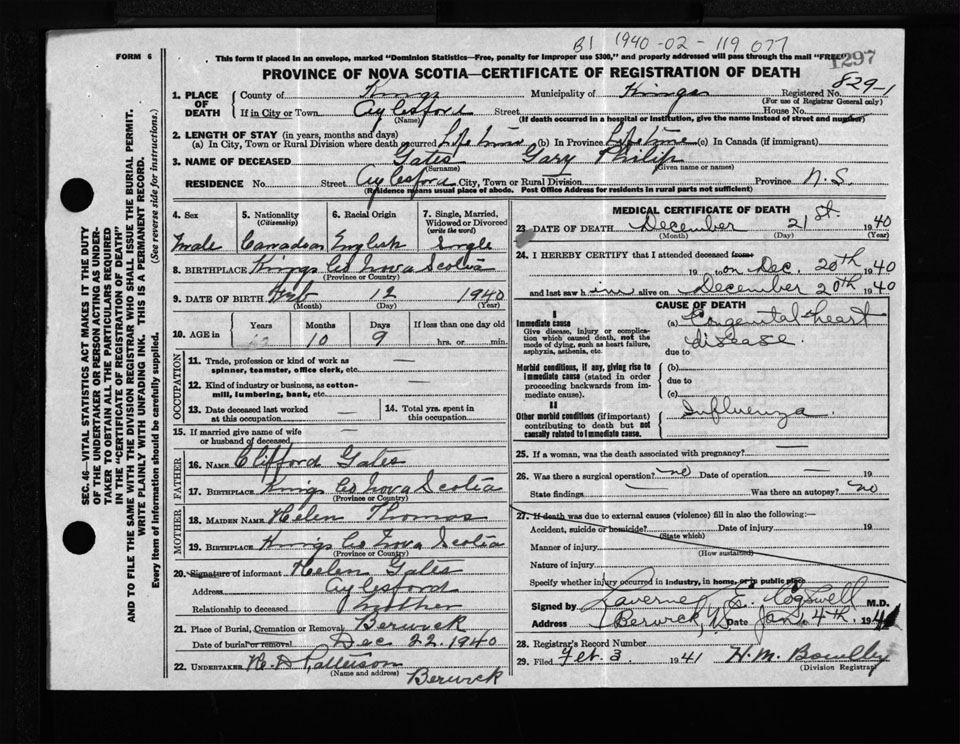 B1 1940-02-119077
1297
FORM 6
This form if placed in an envelope, marked "Dominion Statistics—Free, penalty for improper use $300," and properly addressed will pass through the mail "FREE"
PROVINCE OF NOVA SCOTIA—CERTIFICATE OF REGISTRATION OF DEATH
829-1
1. PLACE OF DEATH
County of Kings Municipality of Kings Registered No.
(For use of Registrar General only)
If in City or Town Aylesford Street House No.
(Name) (If death occurred in a hospital or institution, give the name instead of street and number)
2. LENGTH OF STAY (in years, months and days)
(a) In City, Town or Rural Division where death occurred Life time (b) In Province Life time (c) In Canada (if immigrant)
3. NAME OF DECEASED Gates Gary Philip
(Surname) (Given name or names)
RESIDENCE No. Street Aylesford City, Town or Rural Division Province N.S.
(Residence means usual place of abode. Post Office Address for residents in rural parts not sufficient)
4. Sex
Male
5. Nationality
(Citizenship)
Canadian
6. Racial Origin
English
7. Single, Married, Widowed or Divorced
(write the word)
Single
8. BIRTHPLACE Kings Co Nova Scotia
(Province or Country)
9. DATE OF BIRTH Feb 12 1940
(Month) (Day) (Year)
10. AGE in
Years Months Days If less than one day old
10 9 hrs. or min.
OCCUPATION
11. Trade, profession or kind of work as spinner, teamster, office clerk, etc. —
12. Kind of industry or business, as cotton-mill, lumbering, bank, etc. —
13. Date deceased last worked at this occupation —
14. Total yrs. spent in this occupation.
15. If married give name of wife or husband of deceased —
FATHER
16. NAME Clifford Gates
17. BIRTHPLACE Kings Co Nova Scotia
(Province or Country)
MOTHER
18. MAIDEN NAME Helen Thomas
19. BIRTHPLACE Kings Co Nova Scotia
(Province or Country)
20. Signature of informant Helen Gates
Address Aylesford
Relationship to deceased Mother
21. Place of Burial, Cremation or Removal Berwick
Date of burial or removal Dec 22. 1940
22. UNDERTAKER H. D Patterson
(Name and address) Berwick
MEDICAL CERTIFICATE OF DEATH
23 DATE OF DEATH December 21st. 1940
(Month) (Day) (Year)
24. I HEREBY CERTIFY that I attended deceased from
19 to on Dec. 20th 1940
and last saw him alive on December 20th 1940
CAUSE OF DEATH
I
Immediate cause
Give disease, injury or complication which caused death, not the mode of dying, such as heart failure, asphyxia, asthenia, etc.
(a) Congenital heart
disease.
due to
Morbid conditions, if any, giving rise to immediate cause (stated in order proceeding backwards from immediate cause).
(b)
due to
(c)
II
Other morbid conditions (if important) contributing to death but not causally related to immediate cause.
Influenza.
25. If a woman, was the death associated with pregnancy? —
26. Was there a surgical operation? no Date of operation — 19
State findings — Was there an autopsy? no
27. If death was due to external causes (violence) fill in also the following:—
Accident, suicide or homicide? Date of injury 19
(State which)
Manner of injury
(How sustained)
Nature of injury
Specify whether injury occurred in industry, in home, or in public place
Signed by Laverne E. Cogswell M.D.
Address Berwick, NS Date Jan. 4th, 1941
28. Registrar's Record Number
29. Filed Feb. 3 1941
(Division Registrar)
SEC. 46—VITAL STATISTICS ACT MAKES IT THE DUTY
OF THE UNDERTAKER OR PERSON ACTING AS UNDER-
TAKER TO OBTAIN ALL THE PARTICULARS REQUIRED
IN THE "CERTIFICATE OF REGISTRATION OF DEATH"
AND TO FILE THE SAME WITH THE DIVISION REGISTRAR WHO SHALL ISSUE THE BURIAL PERMIT.
WRITE PLAINLY WITH UNFADING INK. THIS IS A PERMANENT RECORD.
Every item of information should be carefully supplied. (See reverse side for instructions.)